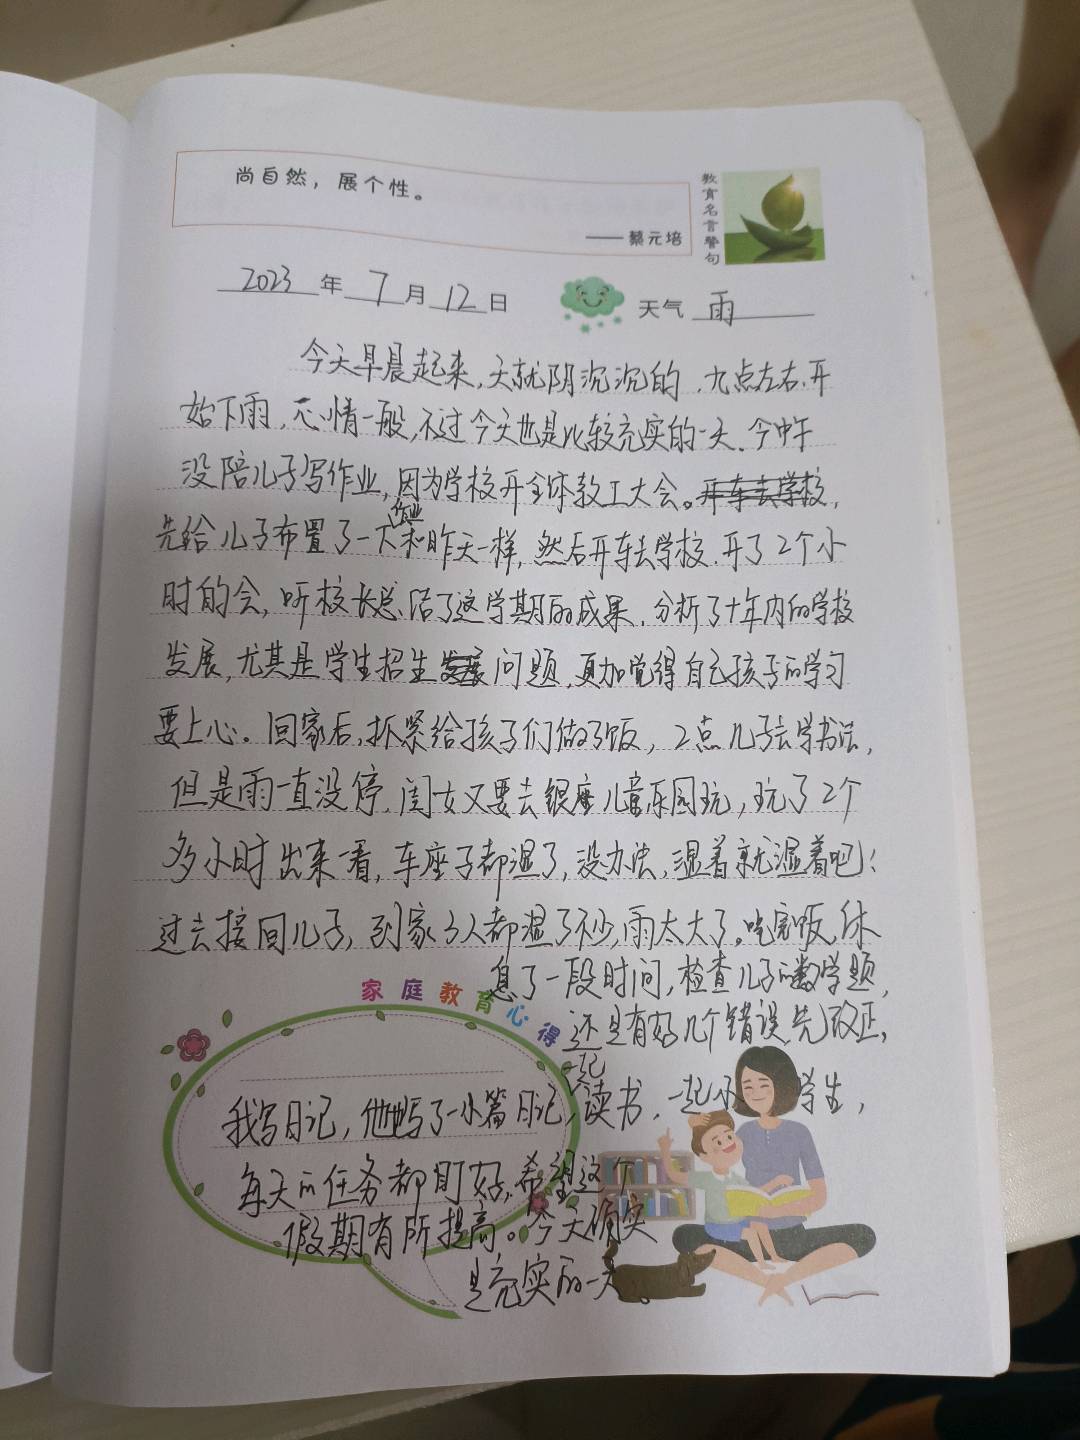 尚自然，展个性。
——蔡元培
教育名言警句
2023年7月12日 天气 雨
今天早晨起来，天就阴沉沉的，九点左右，开
始下雨，心情一般，不过今天也是比较充实的一天。今中午
没陪儿子写作业，因为学校开全体教工大会。开车去学校，
先给儿子布置了一下作业和昨天一样，然后开车去学校．开了2个小
时的会，听校长总结了这学期的成果．分析了十年内的学校
发展，尤其是学生招生发展问题，更加觉得自己孩子的学习
要上心。回家后，抓紧给孩子们做了饭，2点儿子去学书法，
但是雨一直没停．闺女又要去银座儿童乐园玩，玩了2个
多小时出来一看，车座子都湿了，没办法，湿着就湿着吧！
过去接回儿子，到家3人都湿了不少，雨太大了。吃完饭，休
息了一段时间，检查儿子的数学题，
家庭教育心得
还是有好几个错误，先改正，
一起读书．一起小 学生，
我写日记，他也写了一小篇日记，
每天的任务都盯好，希望这个
假期有所提高。今天确实
是充实的一天。